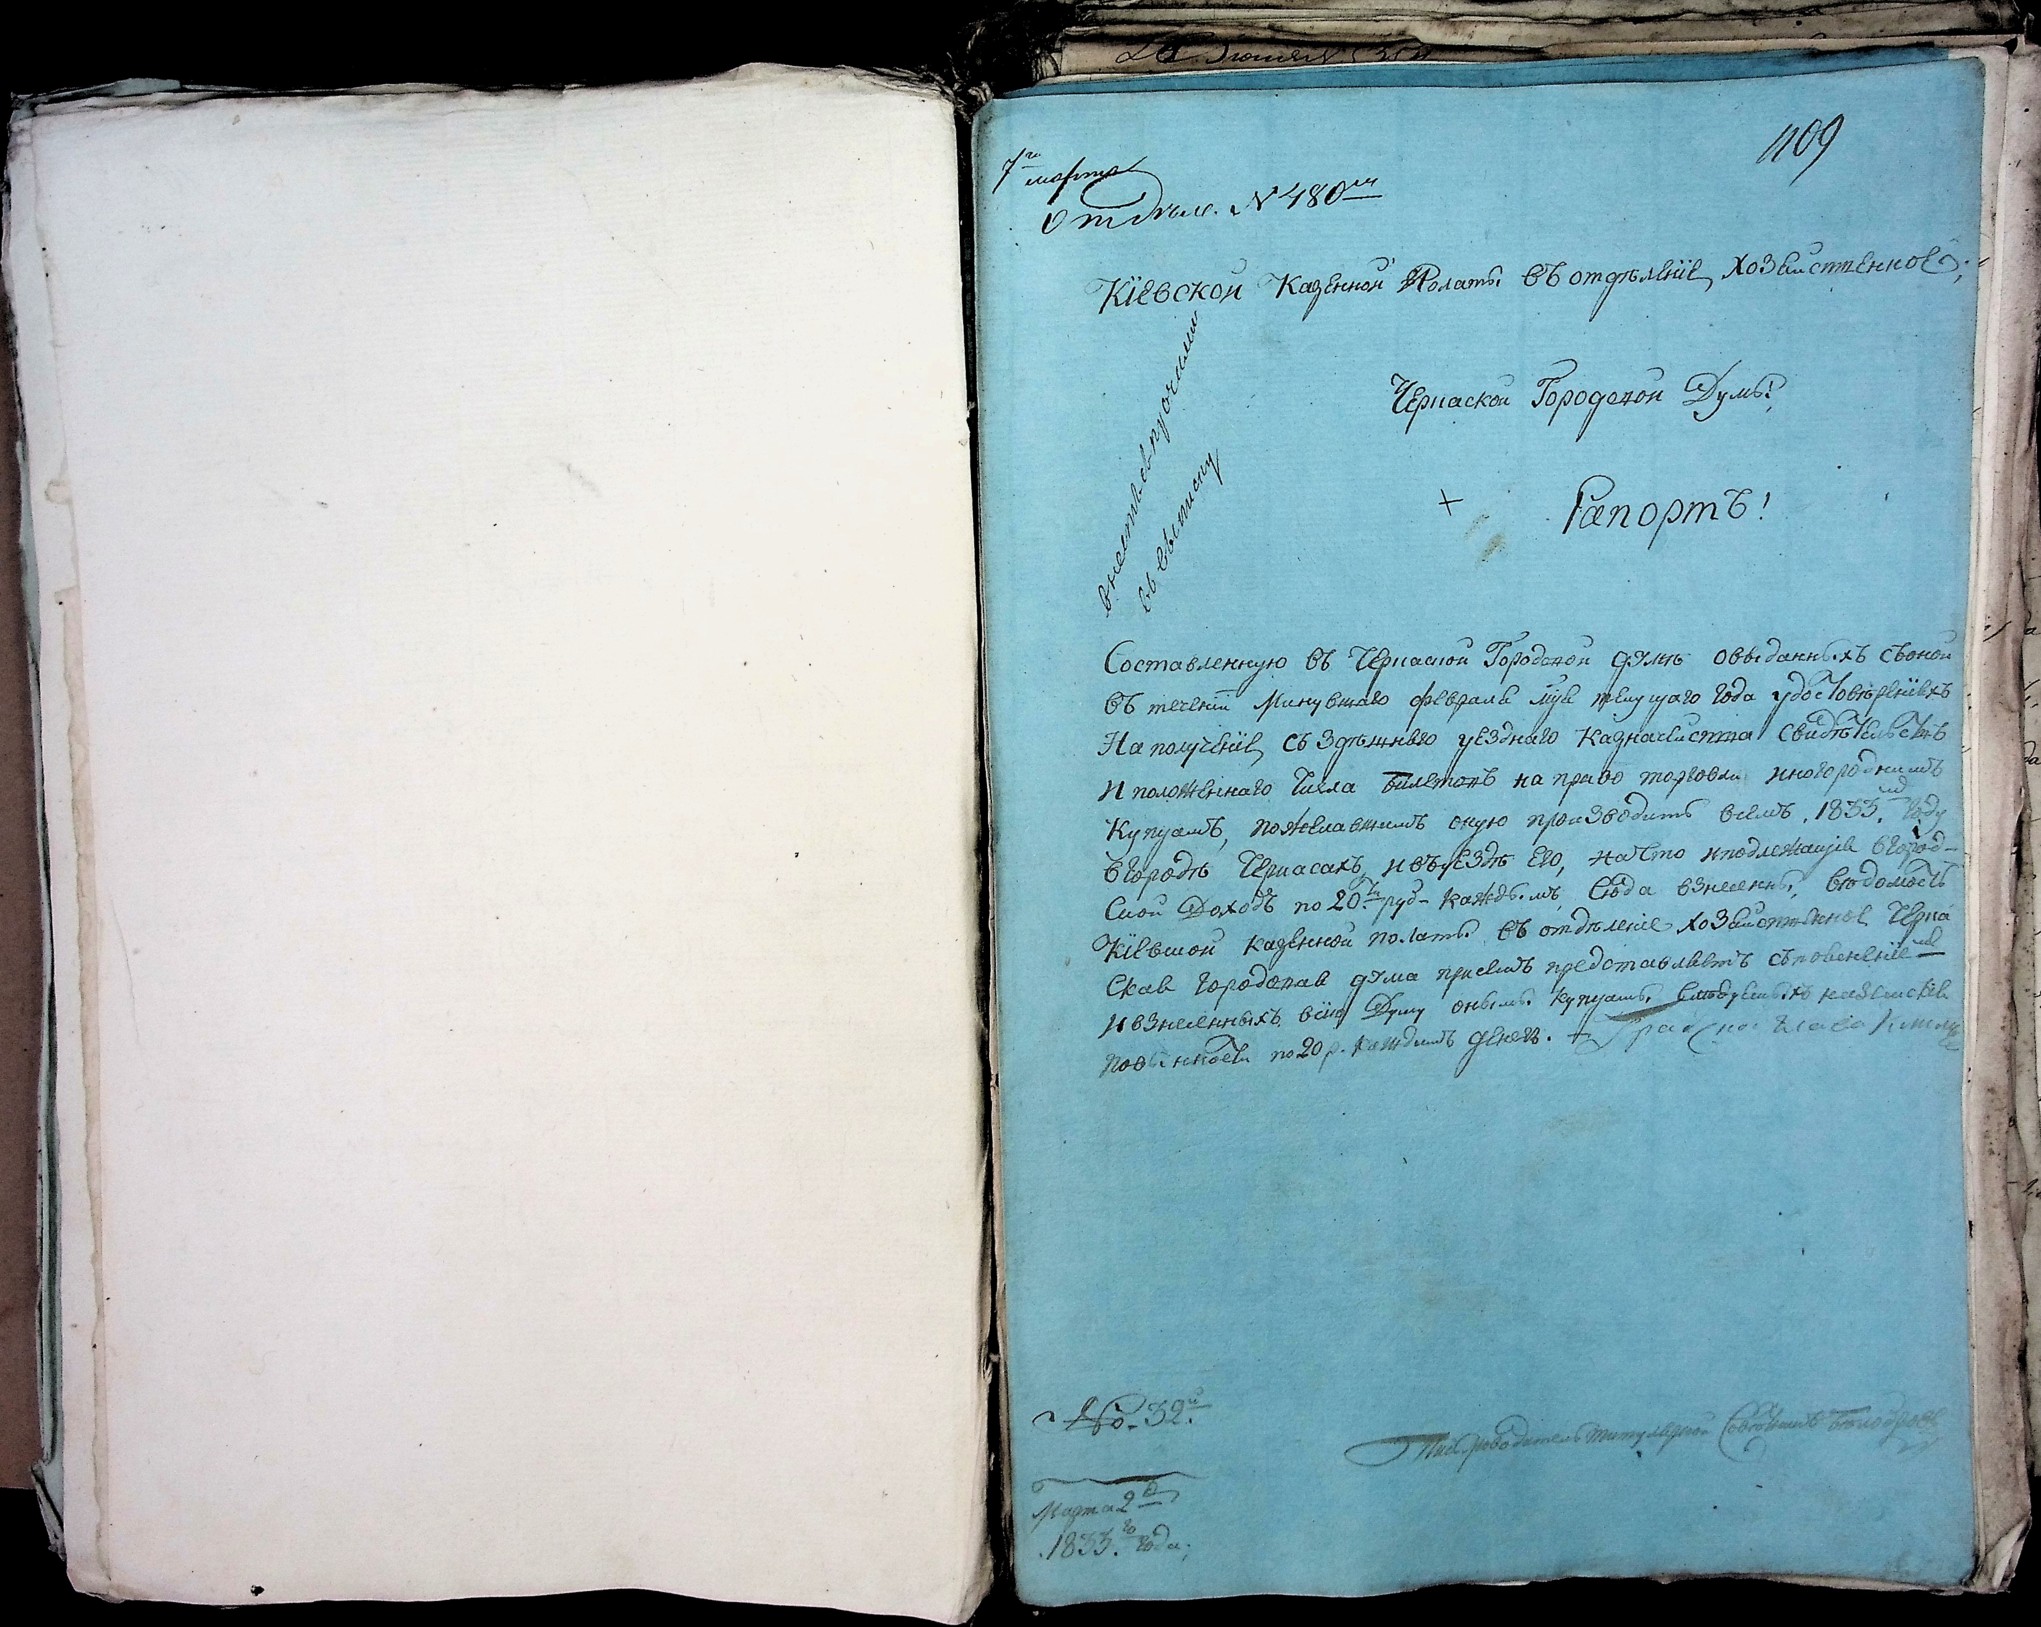 409
7го марта
Отдѣле. № 480
Кіевской Казенной Полаты въ отдѣленіе Хозяйственное;
Черкаской Городской Думы
внесть съ прочими
въ выписку
Рапортъ!
Составленную въ Черкаской Городской думѣ овыданныхъ съоной
въ теченіи Минувшаго февраля текущаго года удостовѣреніяхъ
На полученіе съ здѣшняго уезднаго Казначейства Свидѣтельствъ
И положеннаго Числа билетовъ на право торговли иногороднимъ
Купцамъ, пожелавшимъ оную производить всемъ 1833 году
вгородѣ Черкасахъ, и въуездѣ его, начто и подлежащіе вгород-
ской Доходъ по 20ти руб- каждымъ Сюда взнесены, вѣдомость
Кіевской казенной полаты въ отдѣленіе хозяйственное Черка
ская городская дума присемъ представляетъ
И взнесенныхъ всію Думу онымы купцамы
повинности по 20 р. каждымъ денегъ. +
№ 32й
Письмоводитель титулярной Советникъ
Марта 2
1833го года;